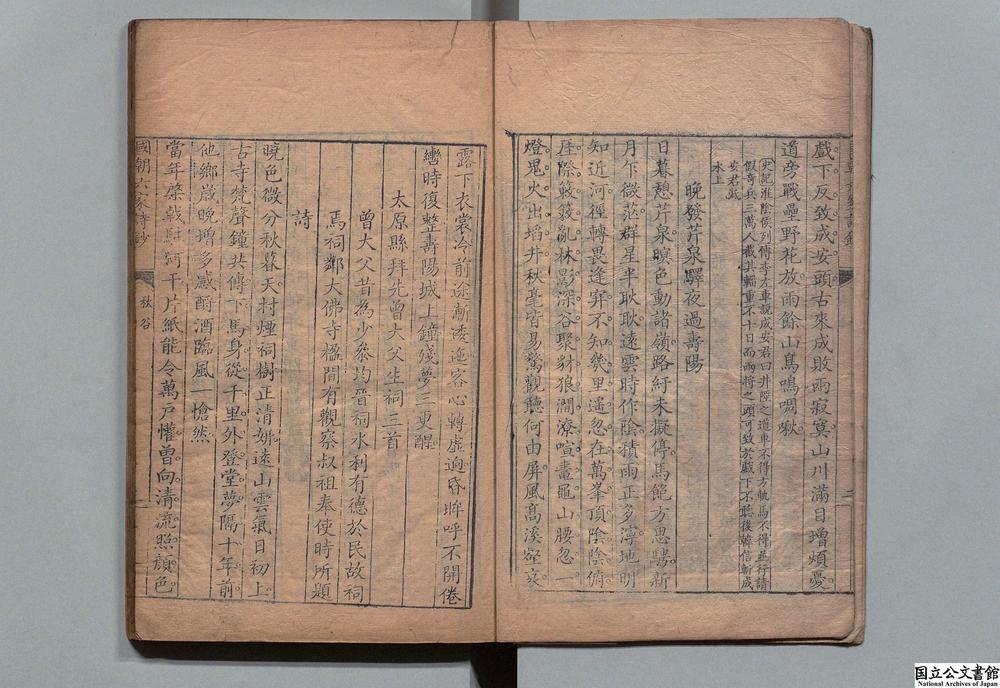 戲下反致成安頭古來成敗兩寂寞山川滿目增煩憂
道旁戰壘野花放雨餘山鳥鳴啁啾
史記淮陰侯列傳李左車說成安君曰井陘之道車不得方軌馬不得並行請
假奇兵三萬人截其輜重不十日而兩將之頭可致於戲下不聽後韓信斬成
安君泜
水上
晚發芹泉驛夜過壽陽
日暮憩芹泉暝色動諸嶺路紆未擬停馬飽方思騁新
月乍微茫群星半耿耿遠雲時作陰積雨正多濘地明
知近河徑轉畏逢穽不知幾里遙忽在萬峯頂陰陰俯
厓際簌簌亂林影深谷聚豺狼澗潦喧鼃黽山腰忽一
燈鬼火出塪井秋毫皆易驚觀聽何由屏風高溪壑哀
露下衣裳冷前途漸淩迤客心轉虛逈昏眸呼不開倦
轡時復整壽陽城上鐘殘夢三更醒
太原縣拜先曾大父生祠三首
曾大父昔為少參均晉祠水利有德於民故祠
焉祠鄰大佛寺楹間有觀察叔祖奉使時所題
詩
曉色微分秋暮天村煙祠樹正清妍遠山雲氣日初上
古寺梵聲鐘共傳下馬身從千里外登堂夢隔十年前
他鄉歲晚增多感酹酒臨風一愴然
當年棨戟駐 干片紙能令萬戶懽曾向清流照顏色
國朝六家詩鈔
秋谷
二
国立公文書館
National Archives of Japan